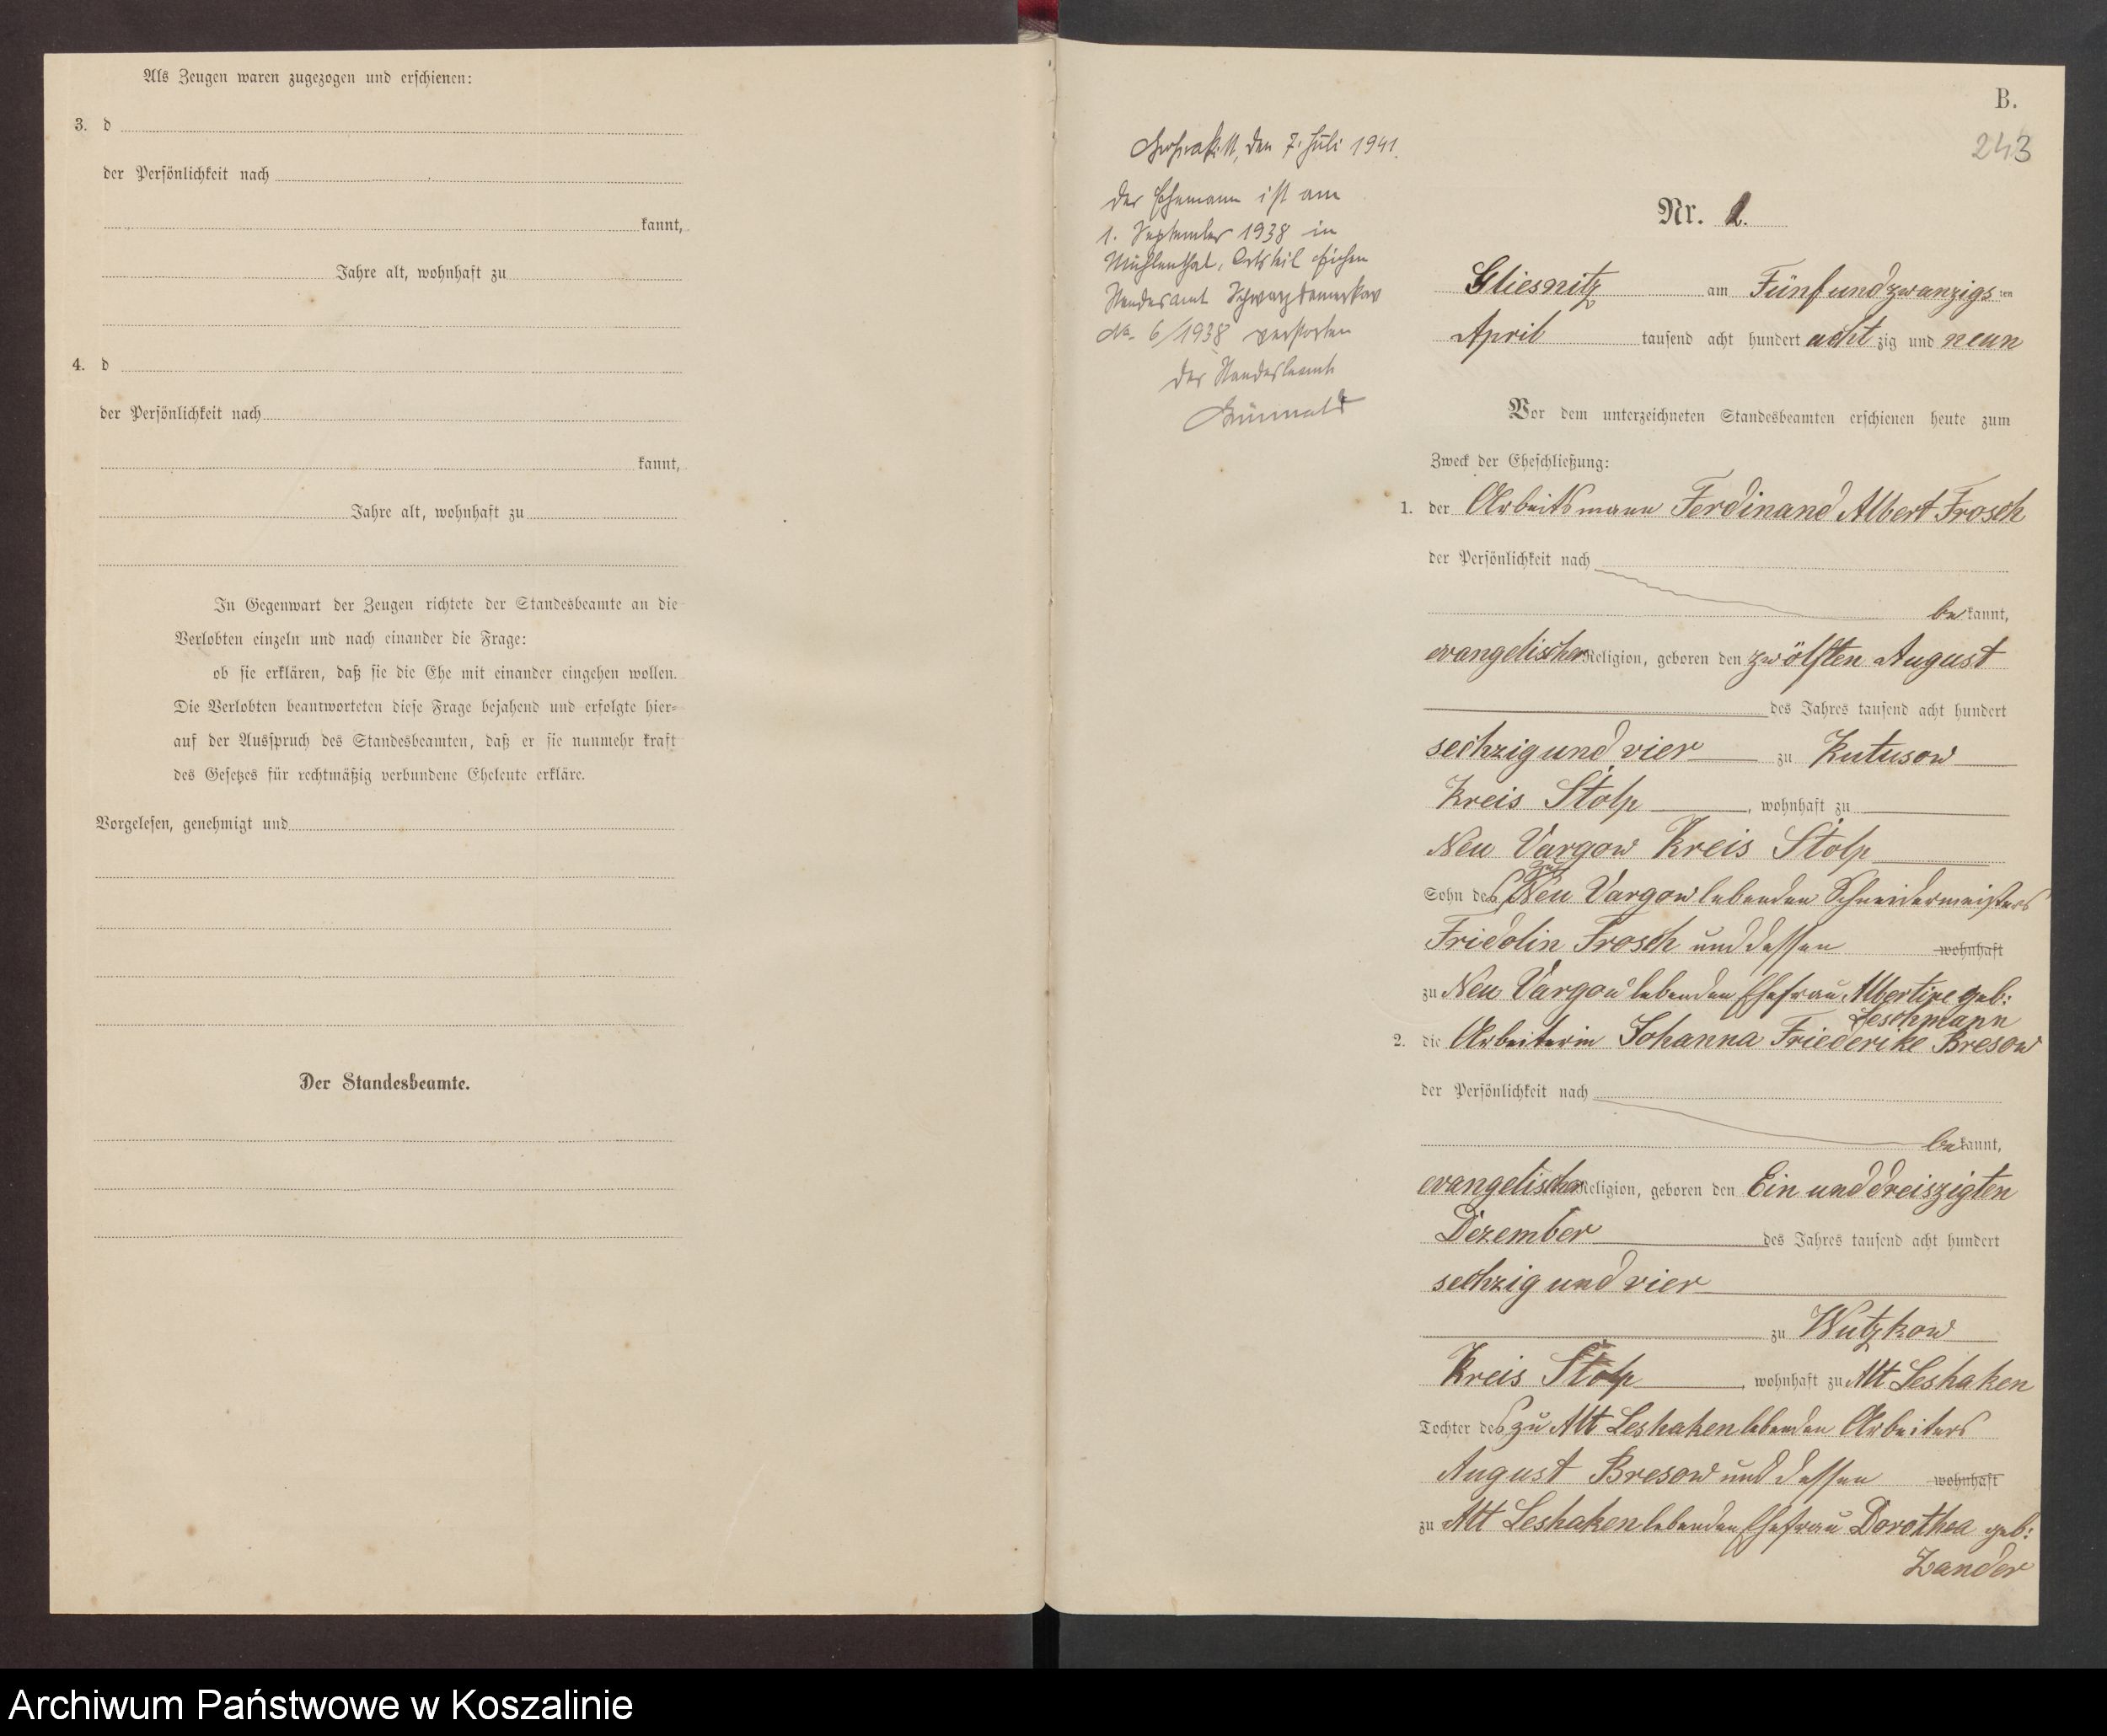 Als Zeugen waren zugezogen und erschienen:
3. d
der Persönlichkeit nach
kannt,
Jahre alt, wohnhaft zu
4. d
der Persönlichkeit nach
kannt,
Jahre alt, wohnhaft zu
In Gegenwart der Zeugen richtete der Standesbeamte an die
Verlobten einzeln und nach einander die Frage:
ob sie erklären, daß sie die Ehe mit einander eingehen wollen.
Die Verlobten beantworteten diese Frage bejahend und erfolgte hier-
auf der Ausspruch des Standesbeamten, daß er sie nunmehr kraft
des Gesetzes für rechtmäßig verbundene Eheleute erkläre.
Vorgelesen, genehmigt und
Der Standesbeamte.
B.
243
den 7. Juli 1941.
Der Ehemann ist am
1. September 1938 in
Mühlenthal, Ortsteil
Standesamt
No. 6/1938 verstorben
Der Standesbeamte
Grünwald
Nr. 2.
Gliesnitz am Fünfundzwanzigsten
April tausend acht hundert achtzig und neun
Vor dem unterzeichneten Standesbeamten erschienen heute zum
Zweck der Eheschließung:
1. der Arbeitsmann Ferdinand Albert Frosch
der Persönlichkeit nach
bekannt,
evangelischer Religion, geboren den zwölften August
des Jahres tausend acht hundert
sechzig und vier zu Kutusow
Kreis Stolp, wohnhaft zu
Neu Vargow Kreis Stolp
Sohn des zu Neu Vargow lebenden Schneidermeisters
Fridolin Frosch und dessen wohnhaft
zu Neu Vargow lebenden Ehefrau Albertine geb:
Leschmann
2. die Arbeiterin Johanna Friederike Bresow
der Persönlichkeit nach
bekannt,
evangelischer Religion, geboren den Ein und dreiszigten
Dezember des Jahres tausend acht hundert
sechzig und vier
zu Wutzkow
Kreis Stolp, wohnhaft zu Alt Leshaken
Tochter des zu Alt Leshaken lebenden Arbeiters
August Bresow und dessen wohnhaft
zu Alt Leshaken lebenden Ehefrau Dorothea geb:
Zander
Archiwum Państwowe w Koszalinie